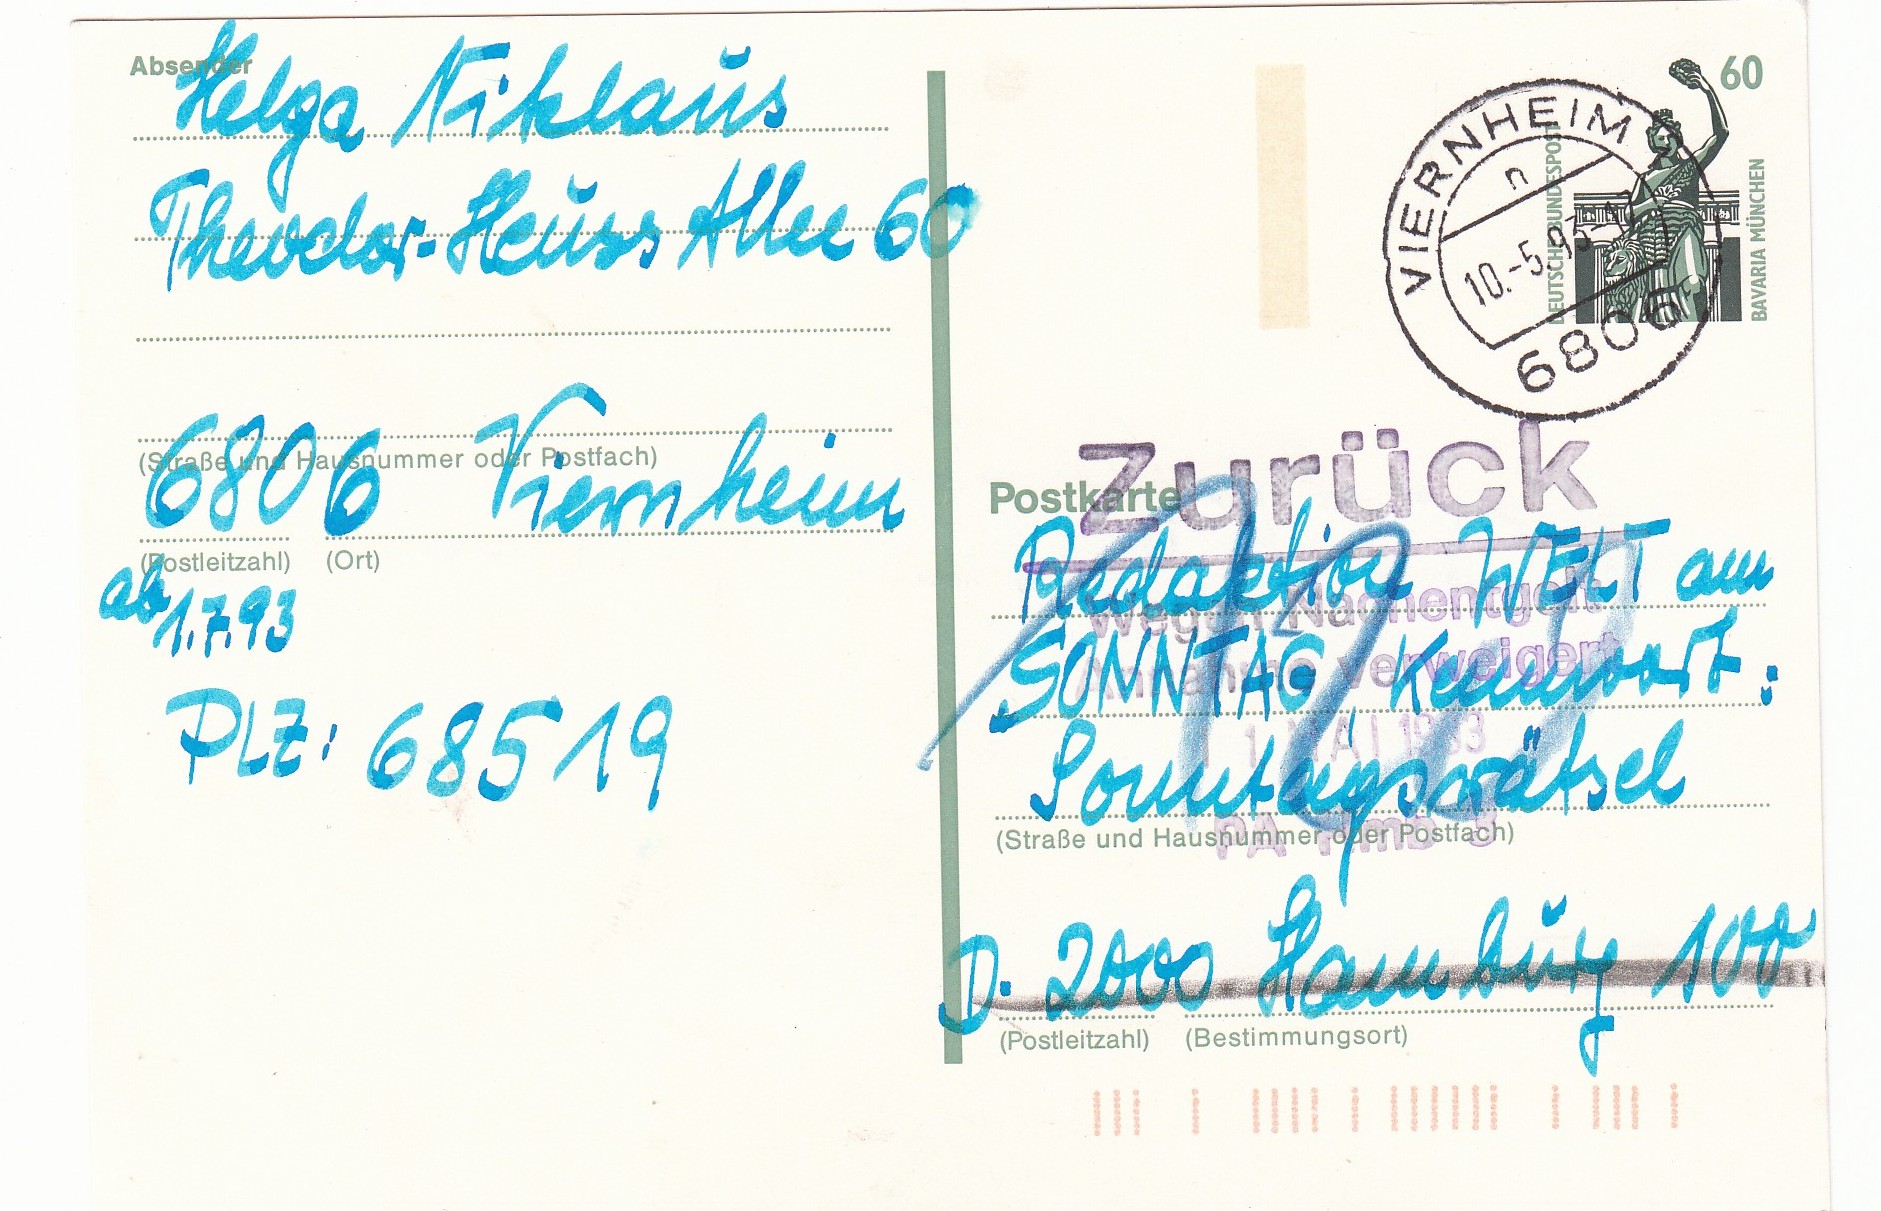 Absender
Helga Niklaus
Theodor-Heuss Allee 60
(Straße und Hausnummer oder Postfach)
6806 Viernheim
(Postleitzahl) (Ort)
ab 1.7.93
PLZ: 68519
60
DEUTSCHE BUNDESPOST
BAVARIA MÜNCHEN
VIERNHEIM
n
10.-5.93
6806
Zurück
Postkarte
Wegen Nachentgelt
Annahme verweigert
MAI 1993
PA Hmb
Redaktion WELT am
SONNTAG Kennwort:
Sonntagsrätsel
(Straße und Hausnummer oder Postfach)
D. 2000 Hamburg 100
(Postleitzahl) (Bestimmungsort)